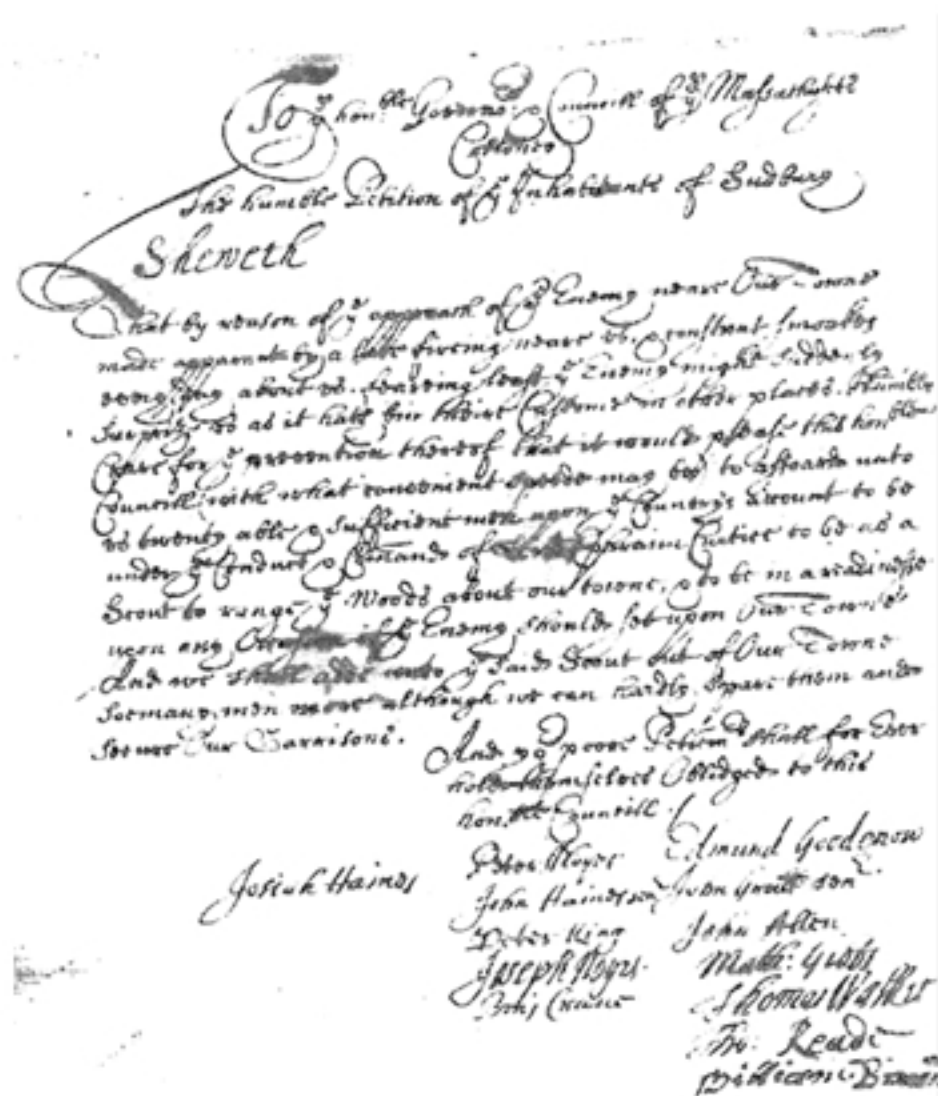 To ye honble Governor & Councill of ye Massachusets
Collonies
The humble Petition of ye Inhabitants of Sudbury
Sheweth
That by reason of ye approach of ye Enemy neare Our Towne
made apparent by a late fireing neare us, & constant smoakes
about us. feareing least ye Enemy might suddenly
Surprize us as it hath bin theire Custome in other places. Humbly
Crave for ye prevention thereof that it would please this honble
Councill, with what convenient speede may bee, to afforde unto
us twenty able & sufficient men upon ye Countrys account to be
under ye Conduct & Comande of Ephraim Curtice to be as a
Scout to range ye Woods about our towne, & to be in a readinesse
upon any if ye Enemy should set upon Our Towne
And we shall adde unto ye saide Scout out of Our Towne
soe many men more although we can hardly spare them and
secure Our Garrisons.
And yor poore Petirs shall for Ever
holde themselves Obliged to this
honble Councill
Peter Noyes Edmund Goodenow
Josiah Haines John Haines senr
John Allen
Peter King Math: Gibbs
Joseph Noyes Thomas Walker
Reade
Browne